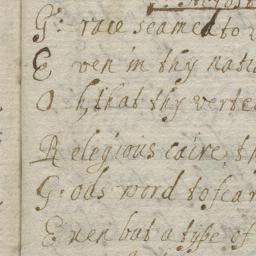 G: race seamed to
E ven in thy nati
O h, that thy verte
R elegious caire th
G: ods word to fear
E uen but a type of